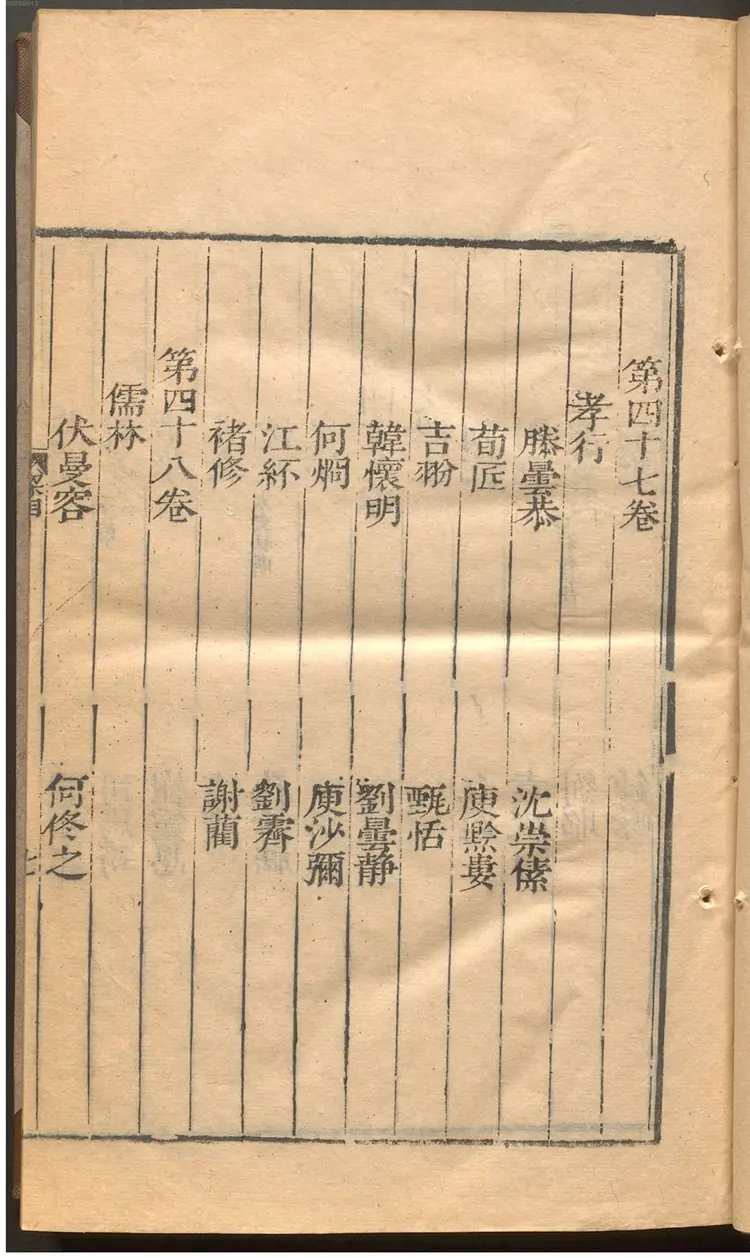 第四十七卷
孝行
滕曇恭 沈崇傃
荀匠 庾黔婁
吉翂 甄恬
韓懷明 劉曇静
何烱 庾沙彌
江紑 劉霽
褚修 謝藺
第四十八卷
儒林
伏曼容 何佟之